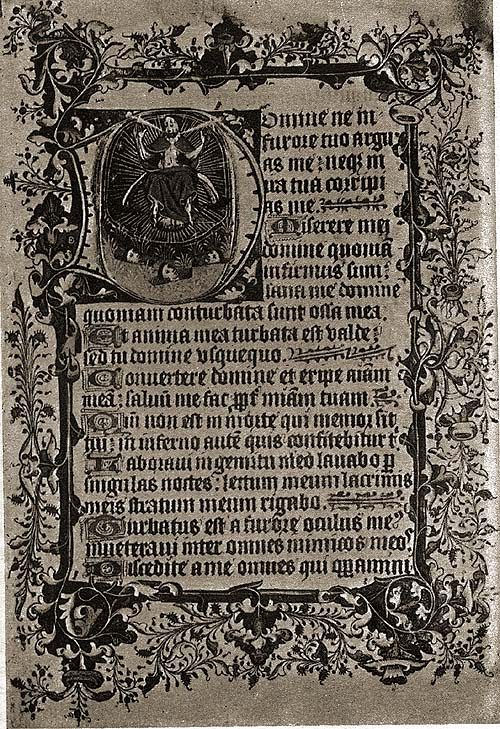 Domine ne in
furore tuo argu
as me : neqz in
ira tua corripi
as me.
Miserere mei
domine quoniā
infirmus sum :
sana me domine
quoniam conturbata sunt ossa mea :
Et anima mea turbata est valde :
sed tu domine vsquequo.
Convertere domine et eripe aīam
meā : saluū me fac ꝓpt̄ mīam tuam
Qm̄ non est in morte qui memor sit
tui : in inferno autē quis confitebitur t
Laboraui in gemitu meo lauabo ꝑ
singulas noctes : lectum meum lacrimis
meis stratum meum rigabo.
Turbatus est a furore oculus meꝰ
inueteraui inter omnes inimicos meoſ
Discedite a me omnes qui opamini